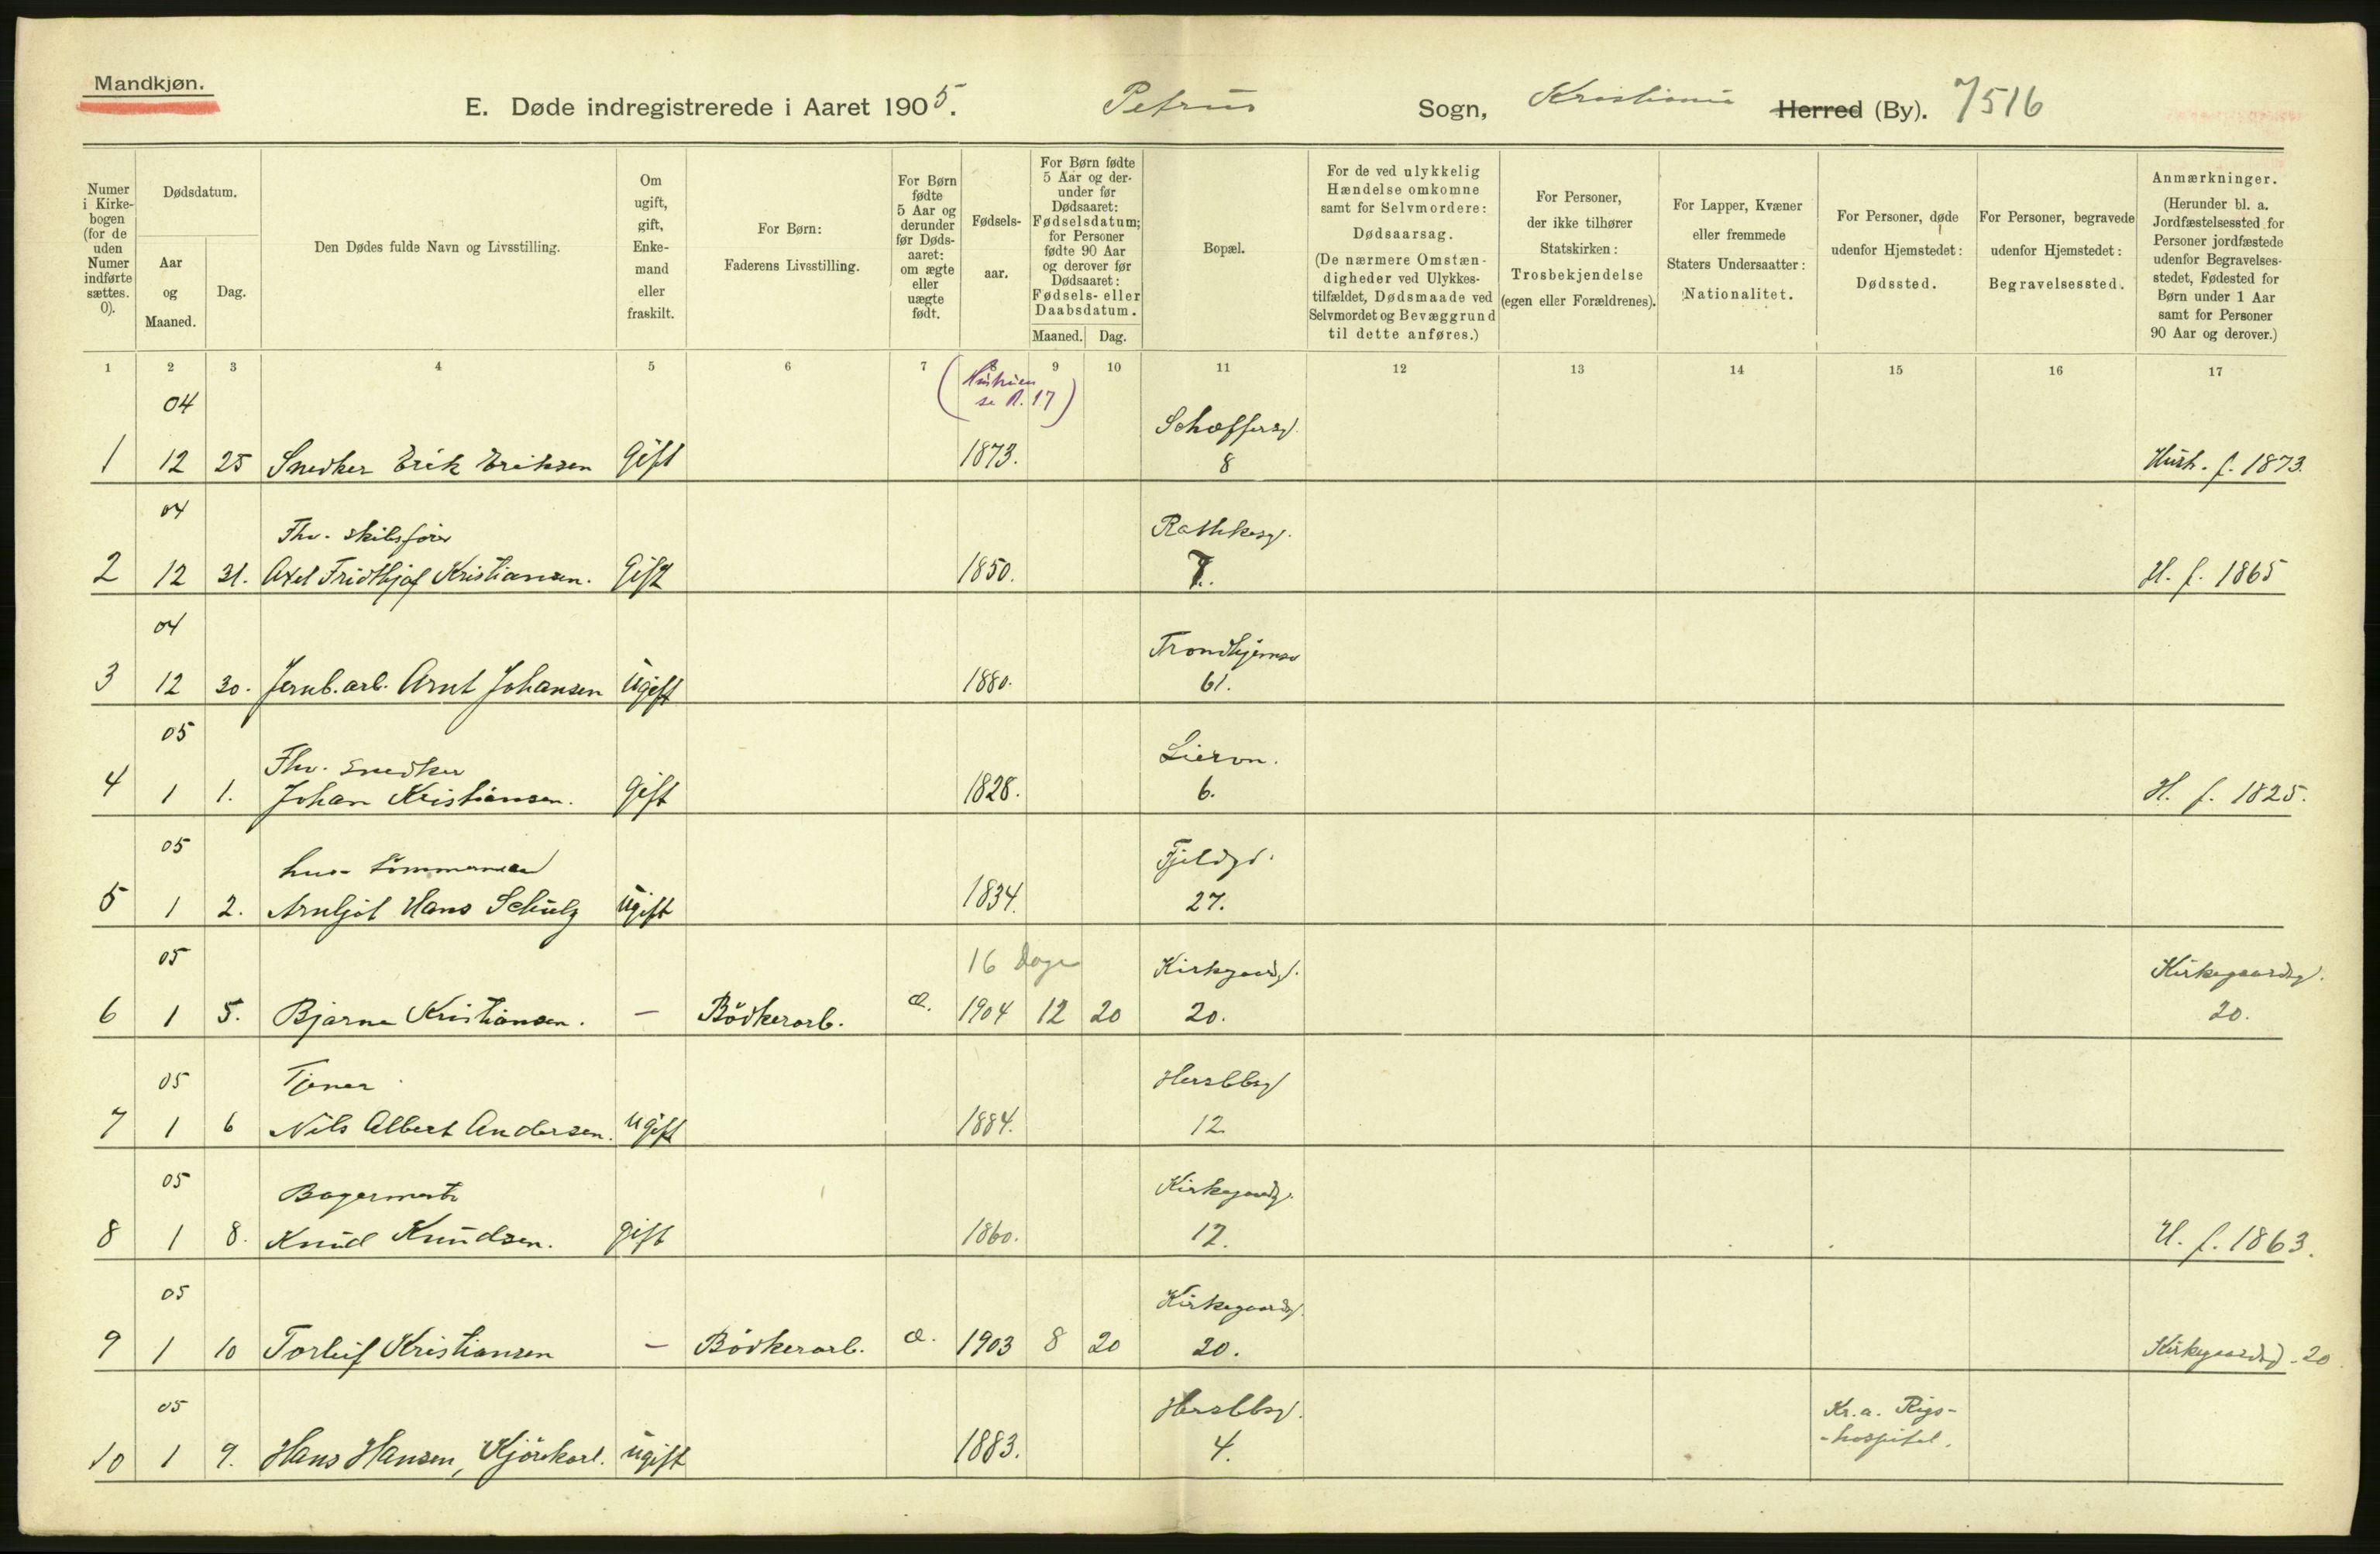 Mandkjøn.
E. Døde indregistrerede i Aaret 1905. Petrus Sogn, Kristiania Herred (By). 7516
Numer i Kirkebogen (for de uden Numer indførte sættes. 0).
Dødsdatum.
Aar og Maaned.
Dag.
Den Dødes fulde Navn og Livsstilling.
Om ugift, gift, Enkemand eller fraskilt.
For Børn: Faderens Livsstilling.
For Børn fødte 5 Aar og derunder før Dødsaaret: om ægte eller uægte født.
Fødselsaar.
For Børn fødte 5 Aar og derunder før Dødsaaret: Fødselsdatum; for Personer fødte 90 Aar og derover før Dødsaaret: Fødsels- eller Daabsdatum.
Maaned. Dag.
Bopæl.
For de ved ulykkelig Hændelse omkomne samt for Selvmordere: Dødsaarsag. (De nærmere Omstændigheder ved Ulykkestilfældet, Dødsmaade ved Selvmordet og Bevæggrund til dette anføres.)
For Personer, der ikke tilhører Statskirken: Trosbekjendelse (egen eller Forældrenes).
For Lapper, Kvæner eller fremmede Staters Undersaatter: Nationalitet.
For Personer, døde udenfor Hjemstedet: Dødssted.
For Personer, begravede udenfor Hjemstedet: Begravelsessted.
Anmærkninger. (Herunder bl. a. Jordfæstelsessted for Personer jordfæstede udenfor Begravelsesstedet, Fødested for Børn under 1 Aar samt for Personer 90 Aar og derover.)
1 2 3 4 5 6 7 8 9 10 11 12 13 14 15 16 17
(Hustruen se R. 17)
04 Schæffersg.
1 12 25 Snedker Erik Eriksen Gift 1873. 8 Hustr. f. 1873.
04 Fhv. skibsfører Rathkesg.
2 12 31. Axel Fridthjof Kristiansen. Gift 1850. 7. H. f. 1865
04 Trondhjemsv
3 12 30. Jernb. arb. Arnt Johansen Ugift 1880. 61.
05 Fhv. Snedker Liervn.
4 1 1. Johan Kristiansen. Gift 1828. 6. H. f. 1825.
05 tømmermand Fjeldgd.
5 1 2. Arnljot Hans Schulz Ugift 1834. 27.
05 16 Dage Kirkegaardsg. Kirkegaardsg.
6 1 5. Bjarne Kristiansen. — Bödkerarb. æ. 1904 12 20 20. 20.
05 Tjener Herslebsg
7 1 6 Nils Albert Andersen. Ugift 1884. 12
05 Bagermester Kirkegaardsg.
8 1 8. Knud Knudsen. gift 1860. 12. H. f. 1863.
05 Kirkegaardsg.
9 1 10 Torleif Kristiansen — Bödkerarb. æ. 1903 8 20 20. Kirkegaardsg. 20.
05 Herslebsg. Kr.a. Rigs-
10 1 9. Hans Hansen, Kjörekarl. ugift 1883. 4. -hospital.